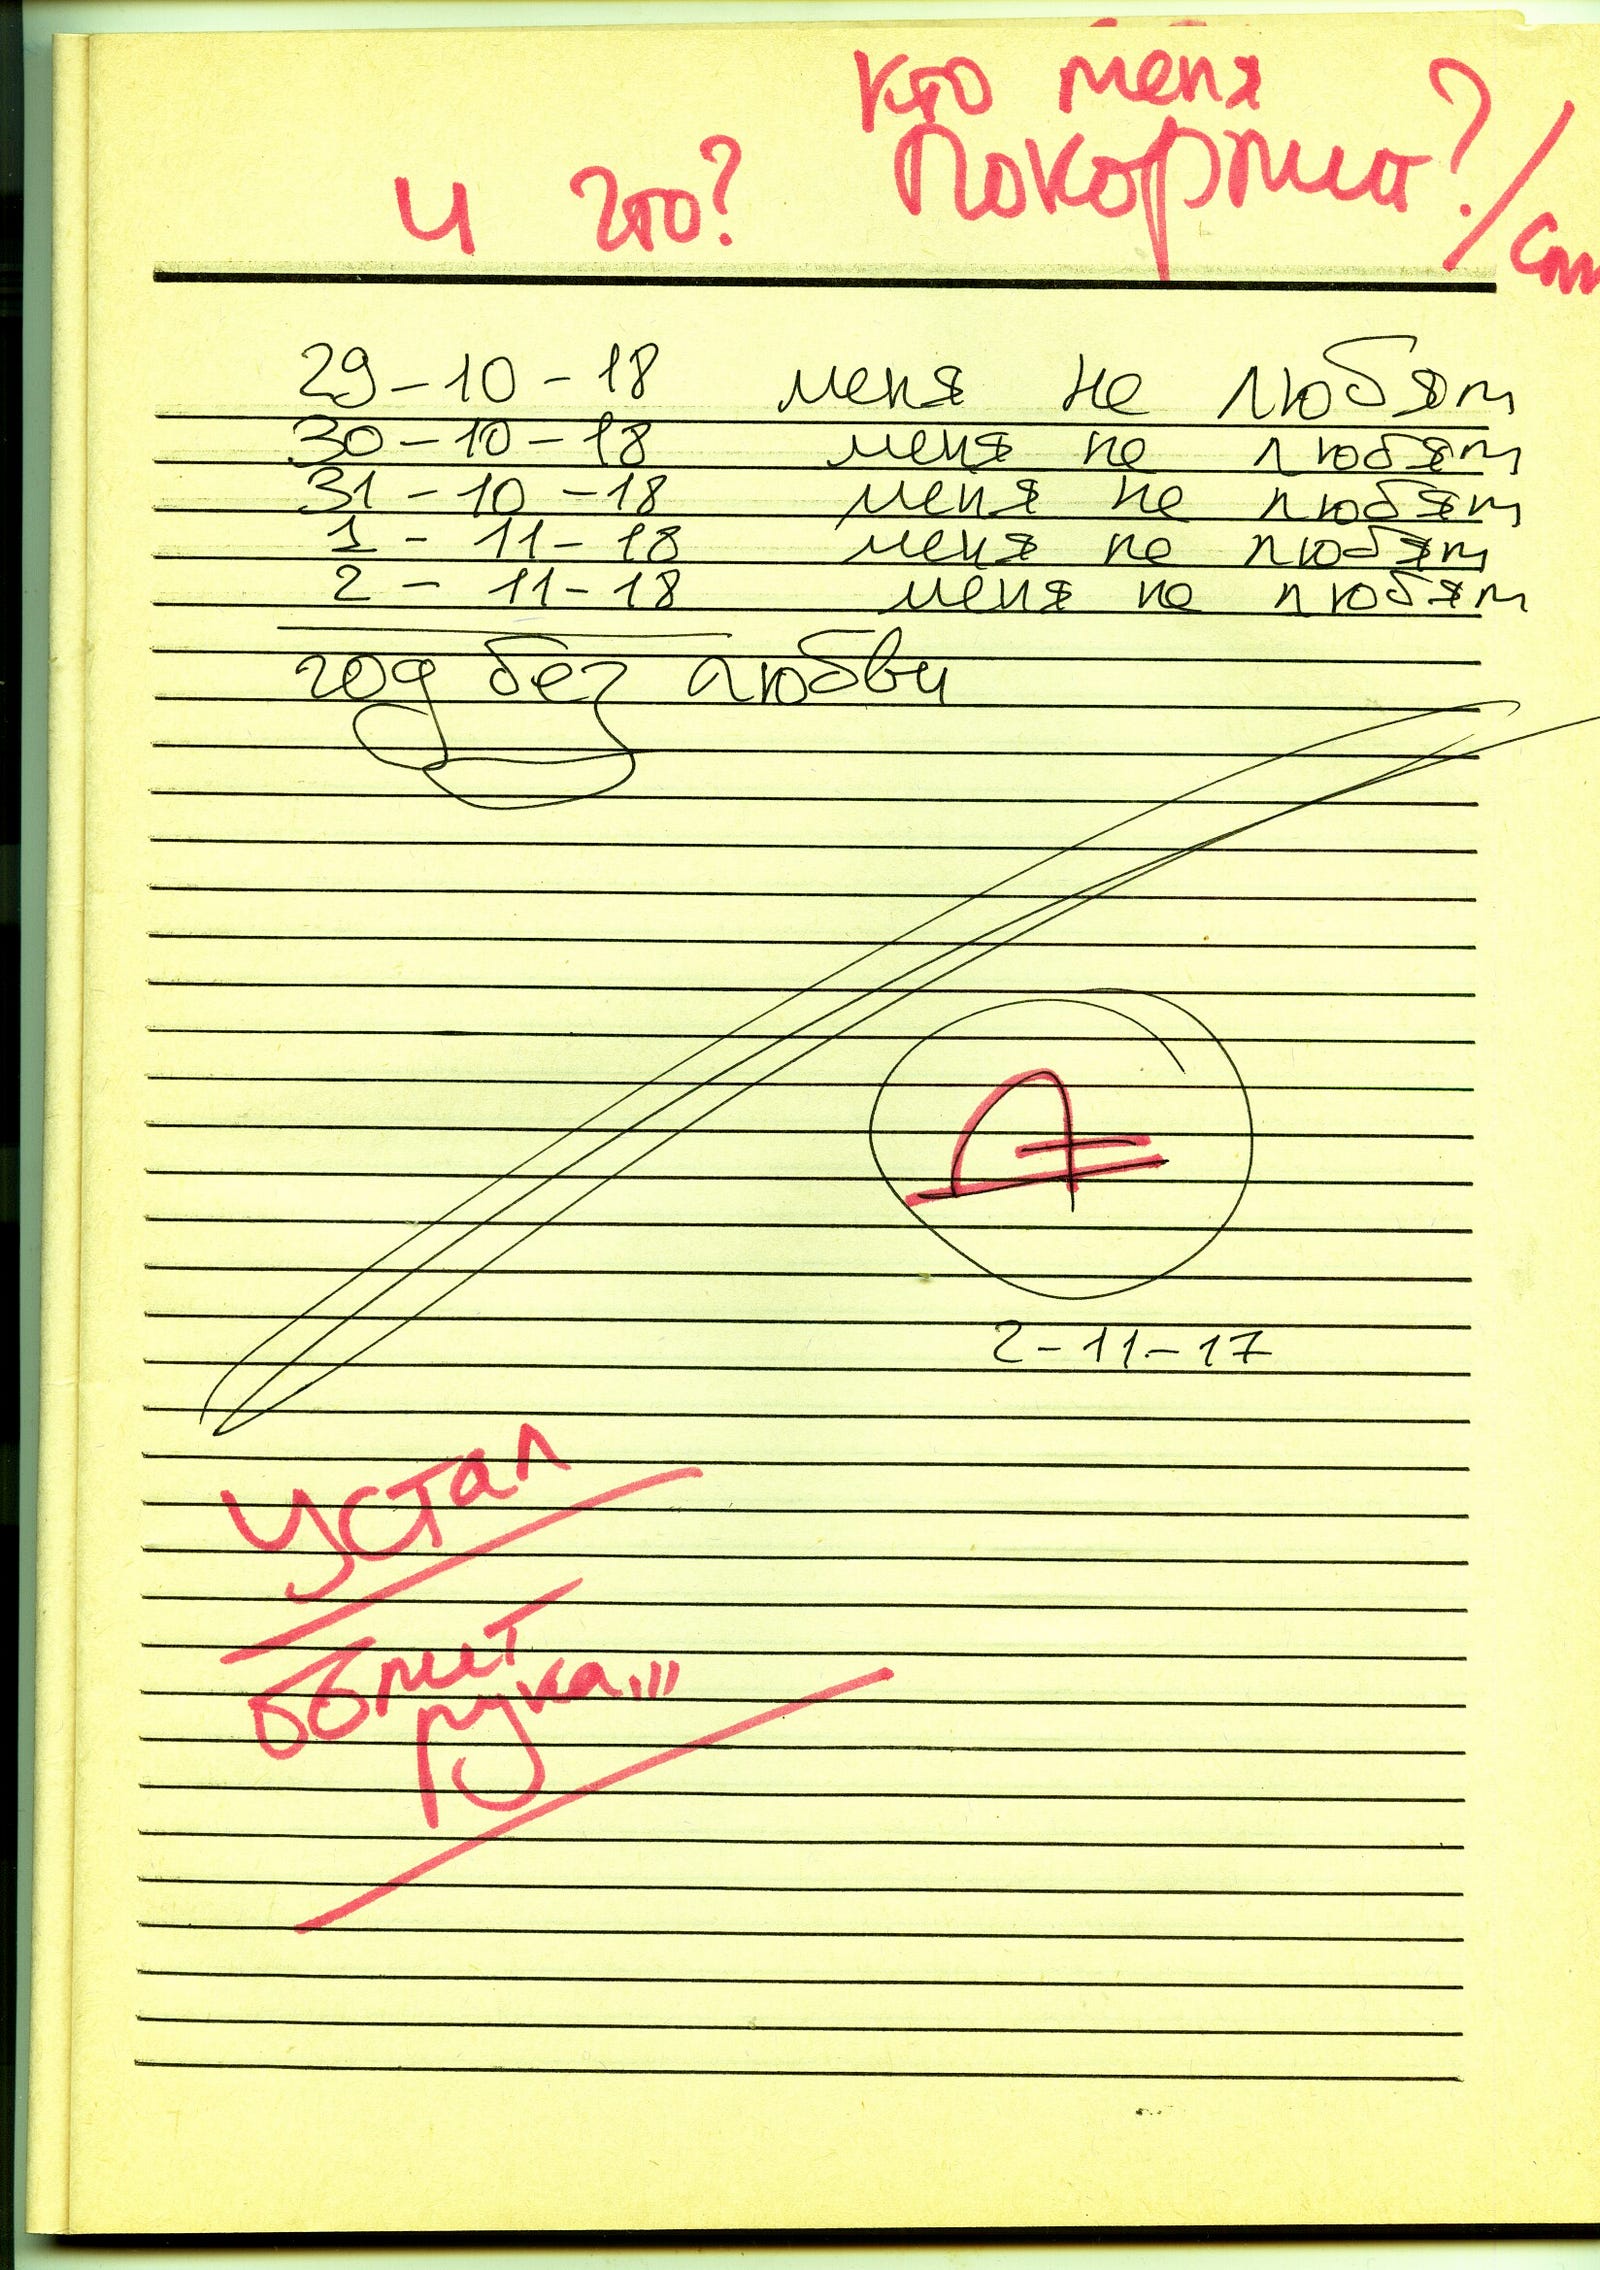 кто меня
и что? покормит?/
29-10-18 меня не любят
30-10-18 меня не любят
31-10-18 меня не любят
1-11-18 меня не любят
2-11-18 меня не любят
год без любви
2-11-17
устал
болит
рука,,,